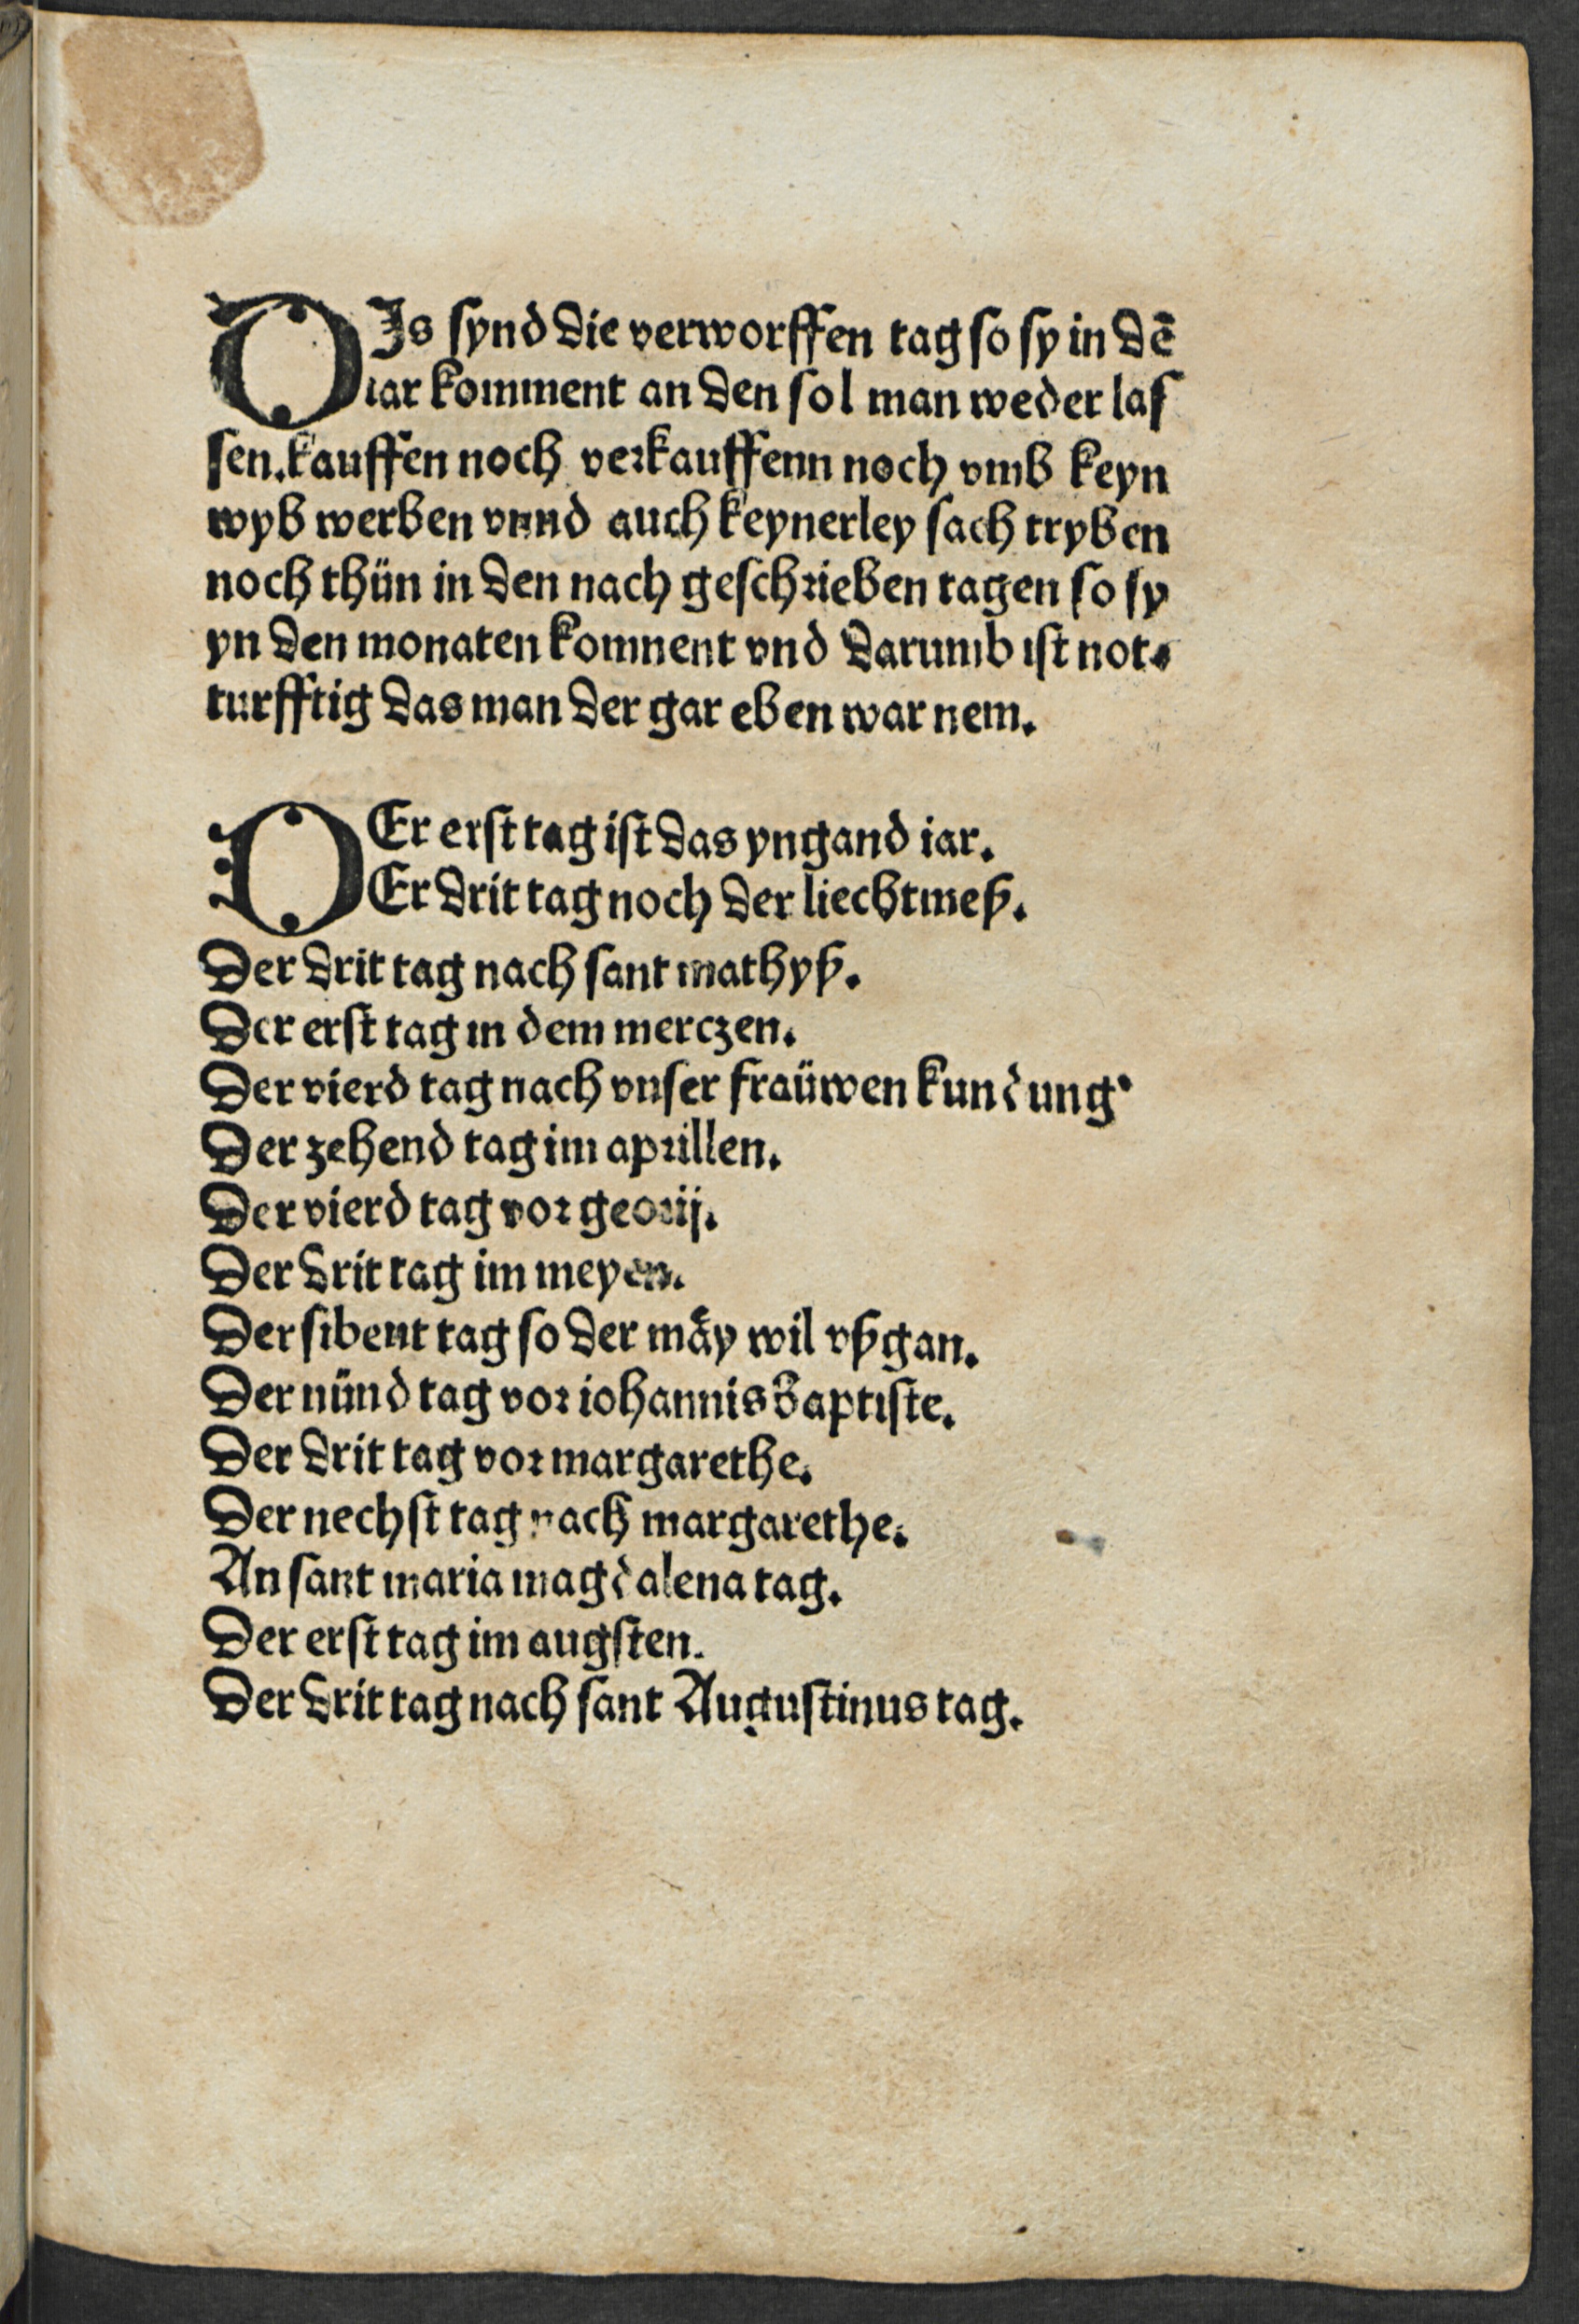 DIs synd die verworffen tag so sy in dē
iar komment an den sol man weder las
sen. kauffen noch verkauffenn noch vmb keyn
wyb werben vnnd auch keynerley sach tryben
noch thün in den nach geschrieben tagen so sy
yn den monaten komnent vnd darumb ist not⸗
turfftig das man der gar eben war nem.
DEr erst tag ist das yngand iar.
Er drit tag noch der liechtmeß.
Der drit tag nach sant mathyß.
Der erst tag in dem merczen.
Der vierd tag nach vnser fraüwen kundung.
Der zehend tag im aprillen.
Der vierd tag vor georij.
Der drit tag im meyen.
Der sibent tag so der mäy wil vßgan.
Der nünd tag vor iohannis Baptiste.
Der drit tag vor margarethe.
Der nechst tag nach margarethe.
An sant maria magdalena tag.
Der erst tag im augsten.
Der drit tag nach sant Augustinus tag.